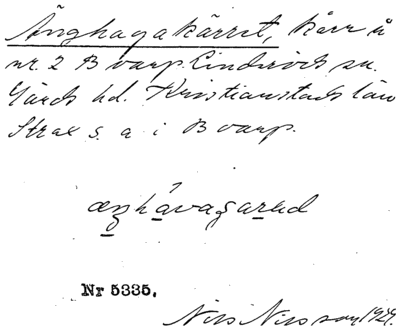 Änghagakärret, kärr å
nr. 2 B varp. Linderöds sn.
Gärds hd. Kristianstads län
Strax s. a i B varp.
ænghávagarəd
Nr 5335.
Nils Nilsson 1929.